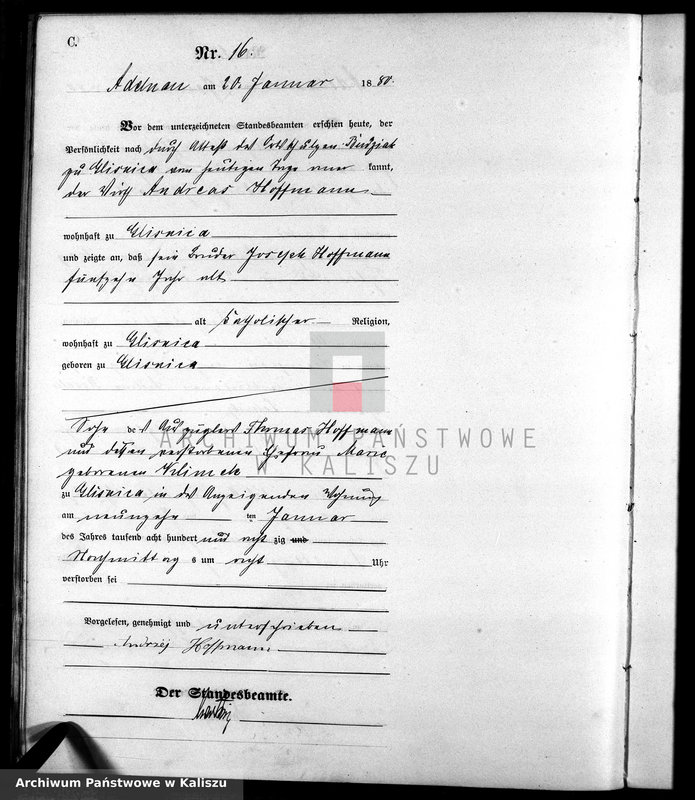 C.
Nr. 16.
Adelnau am 20. Januar 1880.
Vor dem unterzeichneten Standesbeamten erschien heute, der
Persönlichkeit nach durch Attest des Ortsschulzen Kudziak
zu Glisnica vom heutigen Tage aner kannt,
der Wirth Andreas Hoffmann
wohnhaft zu Glisnica
und zeigte an, daß sein Bruder Joseph Hoffmann
fünfzehn Jahr alt
alt katholischer Religion,
wohnhaft zu Glisnica
geboren zu Glisnica
Sohn des Auszüglers Thomas Hoffmann
und dessen verstorbenen Ehefrau Marie
geborenen Klimek
zu Glisnica in des Anzeigenden Wohnung
am neunzehn ten Januar
des Jahres tausend acht hundert und acht zig und
Nachmittags um acht Uhr
verstorben sei
Vorgelesen, genehmigt und unterschrieben
Andrzéj Hoffmann
Der Standesbeamte.
ARCHIWUM PAŃSTWOWE
W KALISZU
Archiwum Państwowe w Kaliszu